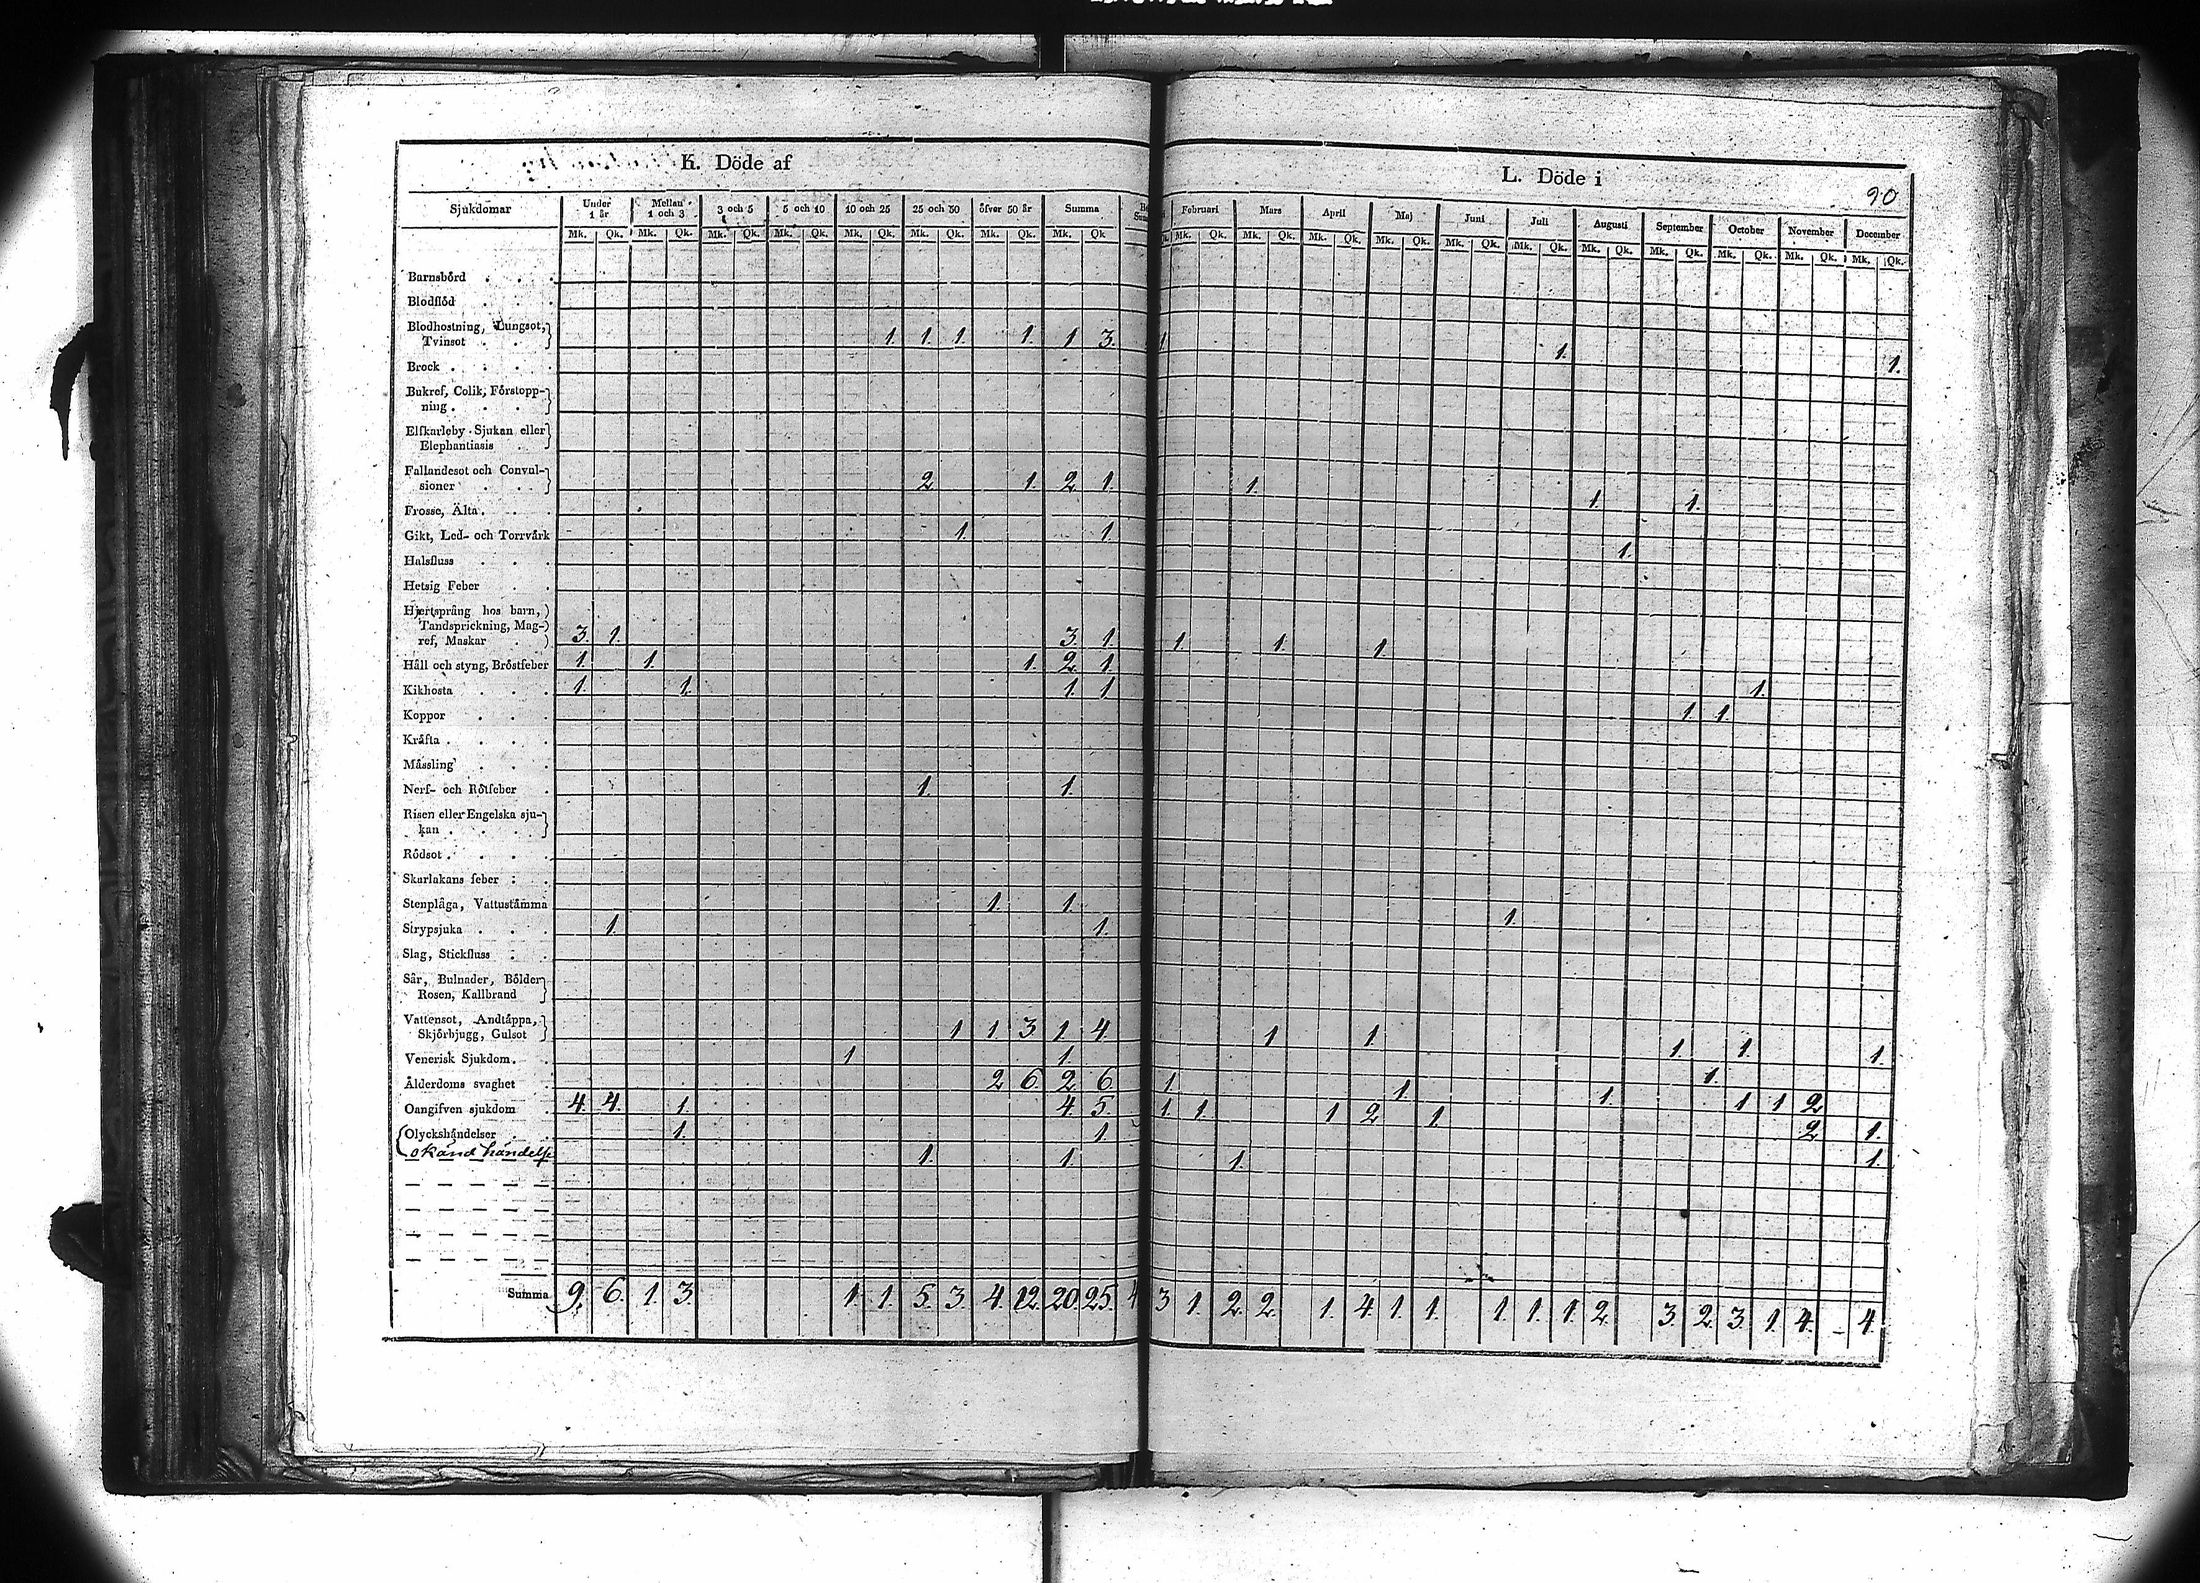 K. Döde af
L. Döde i
90
Sjukdomar Under 1 år Mellan 1 och 3 3 och 5 5 och 10 10 och 25 25 och 50 öfver 50 år Summa
Februari Mars April Maj Juni Juli Augusti September October November December
Mk. Qk. Mk. Qk. Mk. Qk. Mk. Qk. Mk. Qk. Mk. Qk. Mk. Qk. Mk. Qk
Mk. Qk. Mk. Qk. Mk. Qk. Mk. Qk. Mk. Qk. Mk. Qk. Mk. Qk. Mk. Qk. Mk. Qk. Mk. Qk. Mk. Qk.
Barnsbörd
Blodflöd
Blodhostning, Lungsot,
Tvinsot 1. 1. 1. 1. 1. 3. 1 1. 1.
Brock
Bukref, Colik, Förstopp-
ning
Elfkarleby-Sjukan eller
Elephantiasis
Fallandesot och Convul-
sioner 2 1. 2. 1. 1. 1. 1.
Frosse, Älta
Gikt, Led- och Torrvärk 1. 1. 1.
Halsfluss
Hetsig Feber
Hjertsprång hos barn,
Tandsprickning, Mag-
ref, Maskar 3. 1. 3. 1. 1. 1. 1.
Håll och styng, Bröstfeber 1. 1. 1. 2. 1. 1.
Kikhosta 1. 1. 1. 1. 1. 1.
Koppor
Kräfta
Mässling
Nerf- och Rötfeber 1. 1.
Risen eller Engelska sju-
kan
Rödsot
Skarlakans feber
Stenplåga, Vattustämma 1. 1. 1.
Strypsjuka 1. 1.
Slag, Stickfluss
Sår, Bulnader, Bölder
Rosen, Kallbrand
Vattensot, Andtäppa,
Skjörbjugg, Gulsot 1 1. 3 1. 4. 1. 1. 1. 1. 1.
Venerisk Sjukdom 1. 1. 1.
Ålderdoms svaghet 2 6. 2. 6. 1. 1. 1. 1 1 2
Oangifven sjukdom 4. 4. 1. 4. 5. 1. 1 1 2 1. 2 1.
Olyckshändelser 1. 1. 1.
okänd händelse 1. 1. 1.
Summa 9. 6. 1. 3. 1. 1. 5. 3. 4. 12. 20. 25. 4 3 1. 2. 2. 1. 4. 1. 1. 1. 1. 1. 2. 3. 2. 3. 1. 4. 4.